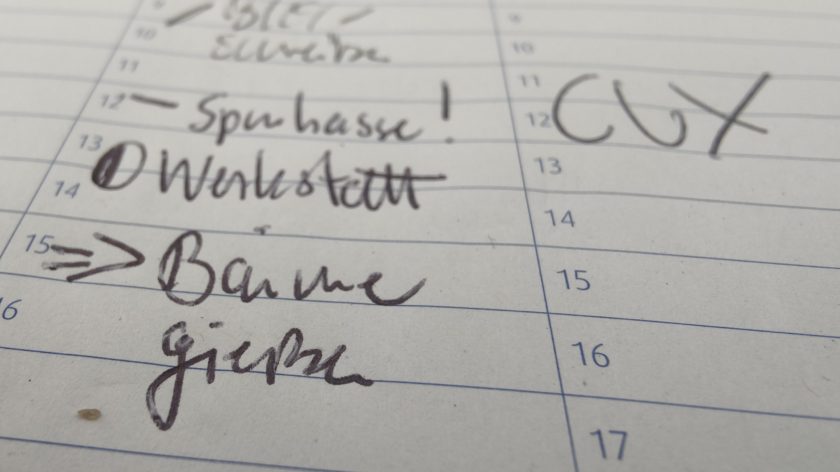 9
10
11
12 – Sparkasse!
13 Werkstatt
14
15 => Bäume
6 gießen
9
10
11
12 CUX
13
14
15
16
17